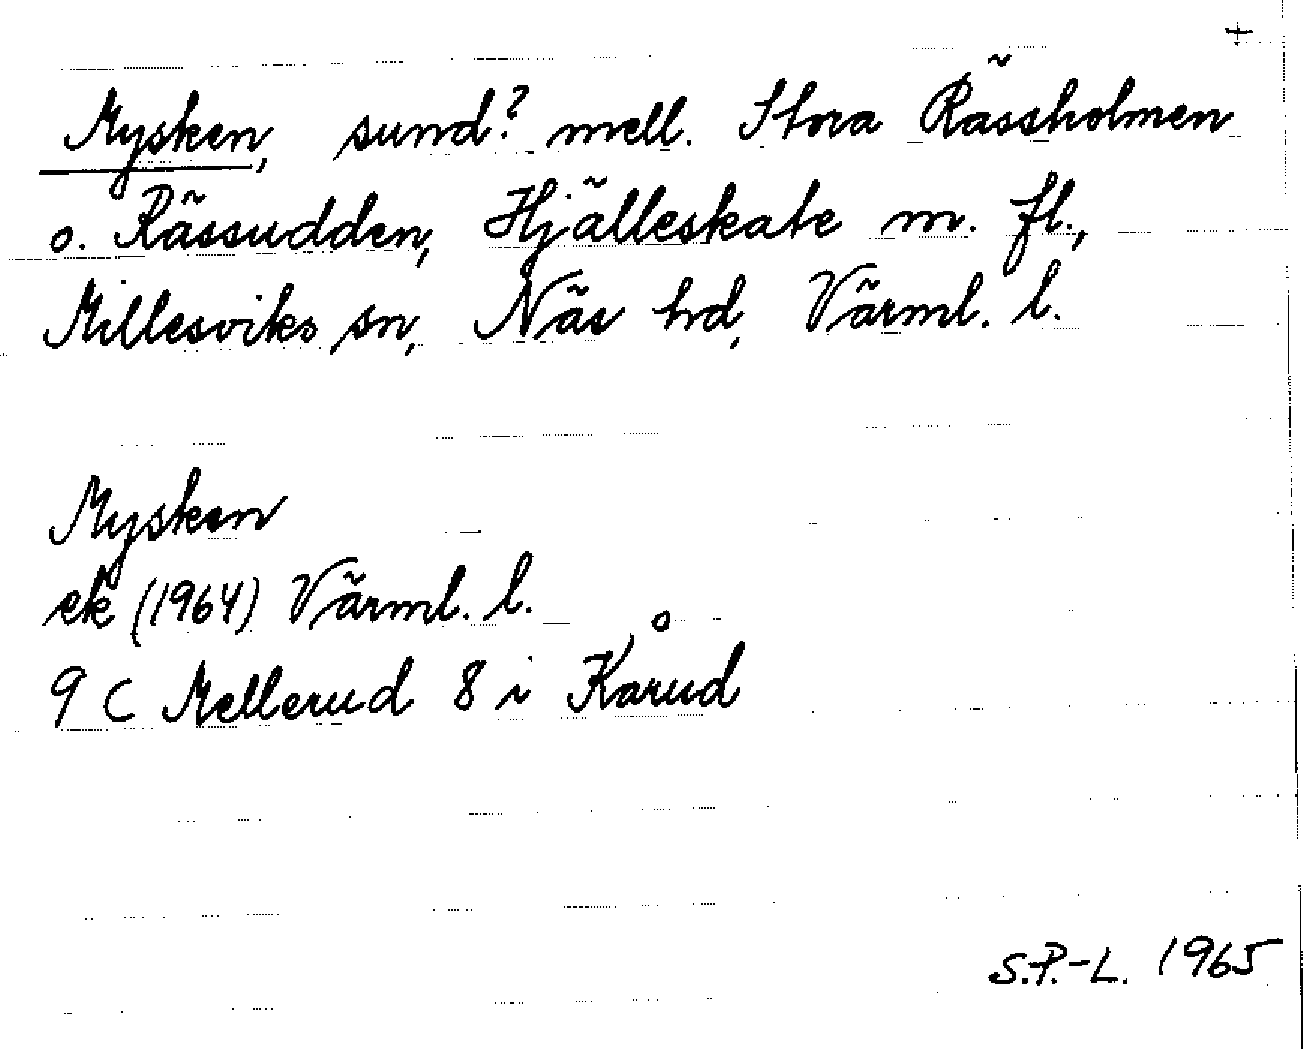 +
Mysken, sund? mell. Stora Rässholmen
o. Rässudden, Hjälleskate m. fl.,
Millesviks sn, Näs hd, Värml. l.
Mysken
ek (1964) Värml. l.
9 C Mellerud 8 i Kårud
S.P.-L. 1965